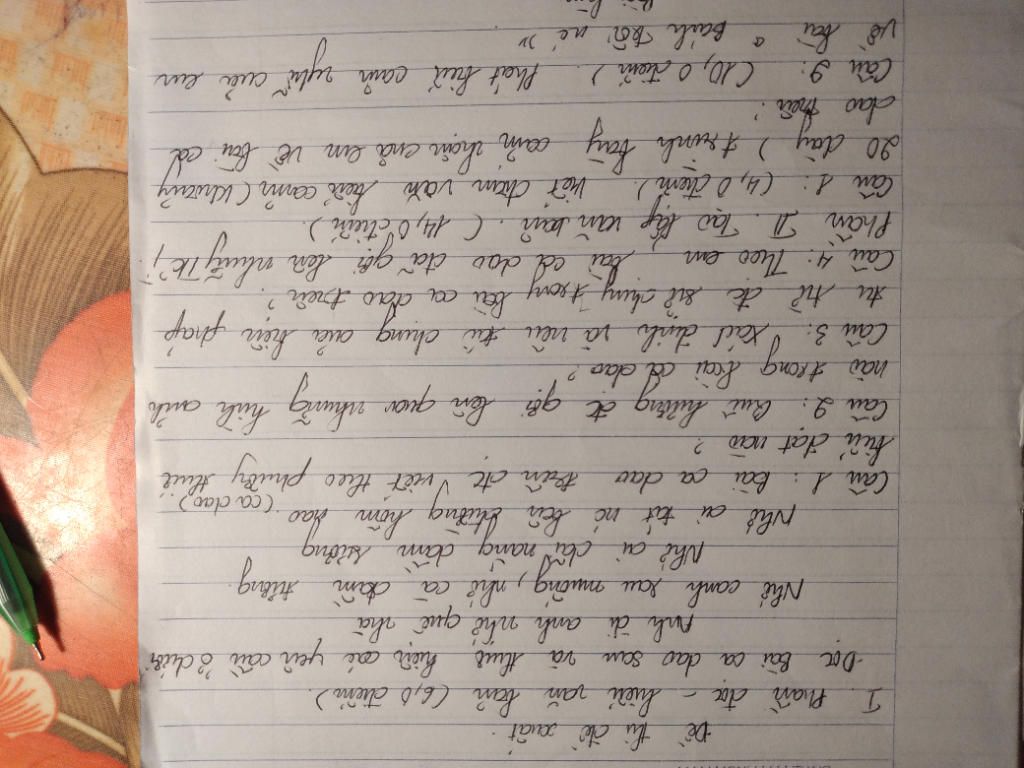 Đề thi đề xuất.
I. Phần đọc - hiểu văn bản (6,0 điểm).
Đọc bài ca dao sau và thực hiện các yêu cầu ở dưới,
Anh đi anh nhớ quê nhà
Nhớ canh rau muống, nhớ cà dầm tương.
Nhớ ai dãi nắng dầm sương
Nhớ ai tát nước bên đường hôm nao
(ca dao)
Câu 1: Bài ca dao trên đc viết theo phương thức
biểu đạt nào?
Câu 2: Quê hương đc gợi lên qua những hình ảnh
nào trong bài ca dao?
Câu 3: Xác định và nêu tác dụng của biện pháp
tu từ đc sử dụng trong bài ca dao trên?
Câu 4: Theo em, bài ca dao đã gợi lên những TC gì
Phần II. Tạo lập văn bản. (14,0 điểm).
Câu 1: (4,0 điểm). Viết đoạn văn biểu cảm (khoảng
20 dòng) trình bày cảm nhận của em về bài ca
dao trên.
Câu 2: (10,0 điểm). Phát biểu cảm nghĩ của em
về bài "Bánh trôi nước"